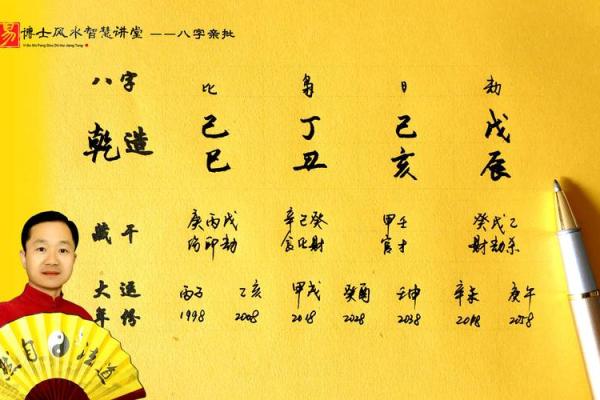 易 博士风水智慧讲堂 ——八字亲批
Yi Bo Shi Feng Shui Zhi Hui Jiang Tang
八字 比 枭 日 劫
乾造 己 丁 己 戊
巳 丑 亥 辰
藏干 庚丙戊 辛己癸 甲壬 癸戊乙
伤印劫 食比财 官才 财劫杀
大运 丙子 乙亥 甲戌 癸酉 壬申 辛未 庚午
年份 1998 2008 2018 2028 2038 2048 2058
然自法道